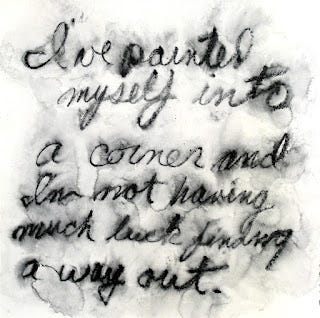 I've painted
myself into
a corner and
I'm not having
much luck finding
a way out.